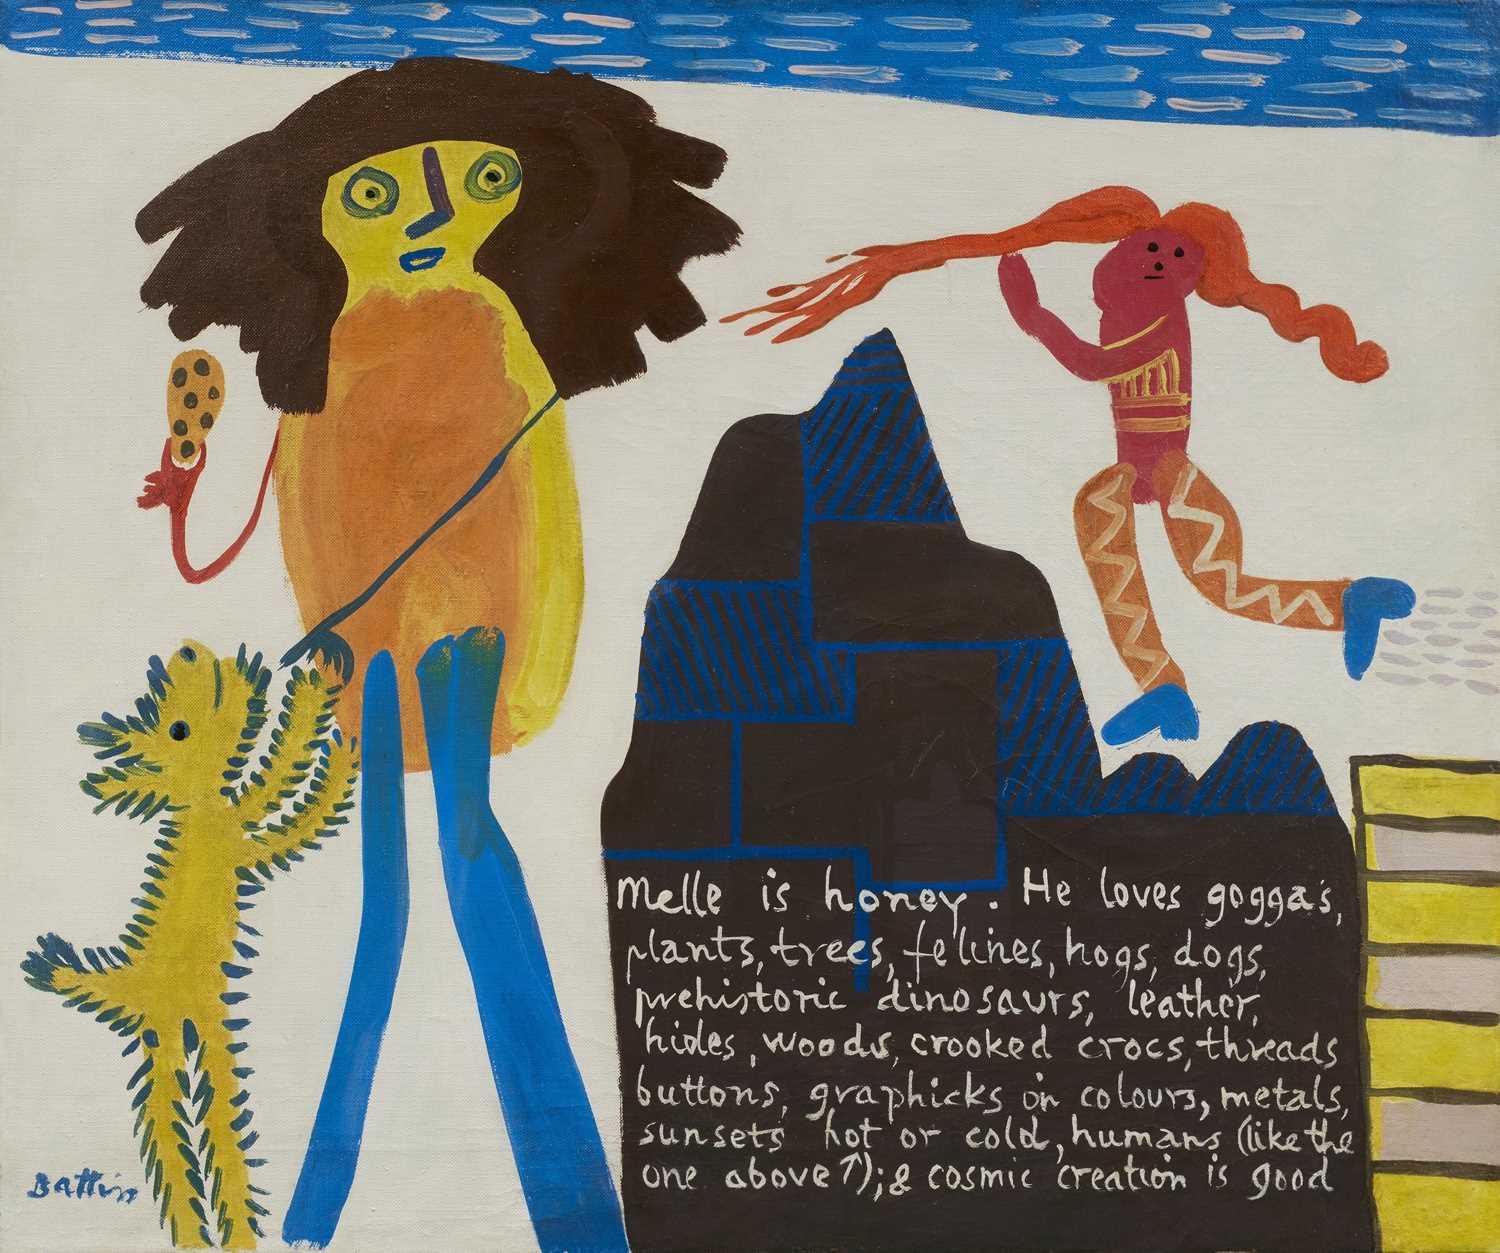 Melle is honey. He loves gogga's,
plants, trees, felines, hogs, dogs,
prehistoric dinosaurs, leather,
hides, woods, crooked crocs, threads
buttons, graphicks in colours, metals,
sunsets hot or cold, humans (like the
one above ↑); & cosmic creation is good
Battiss